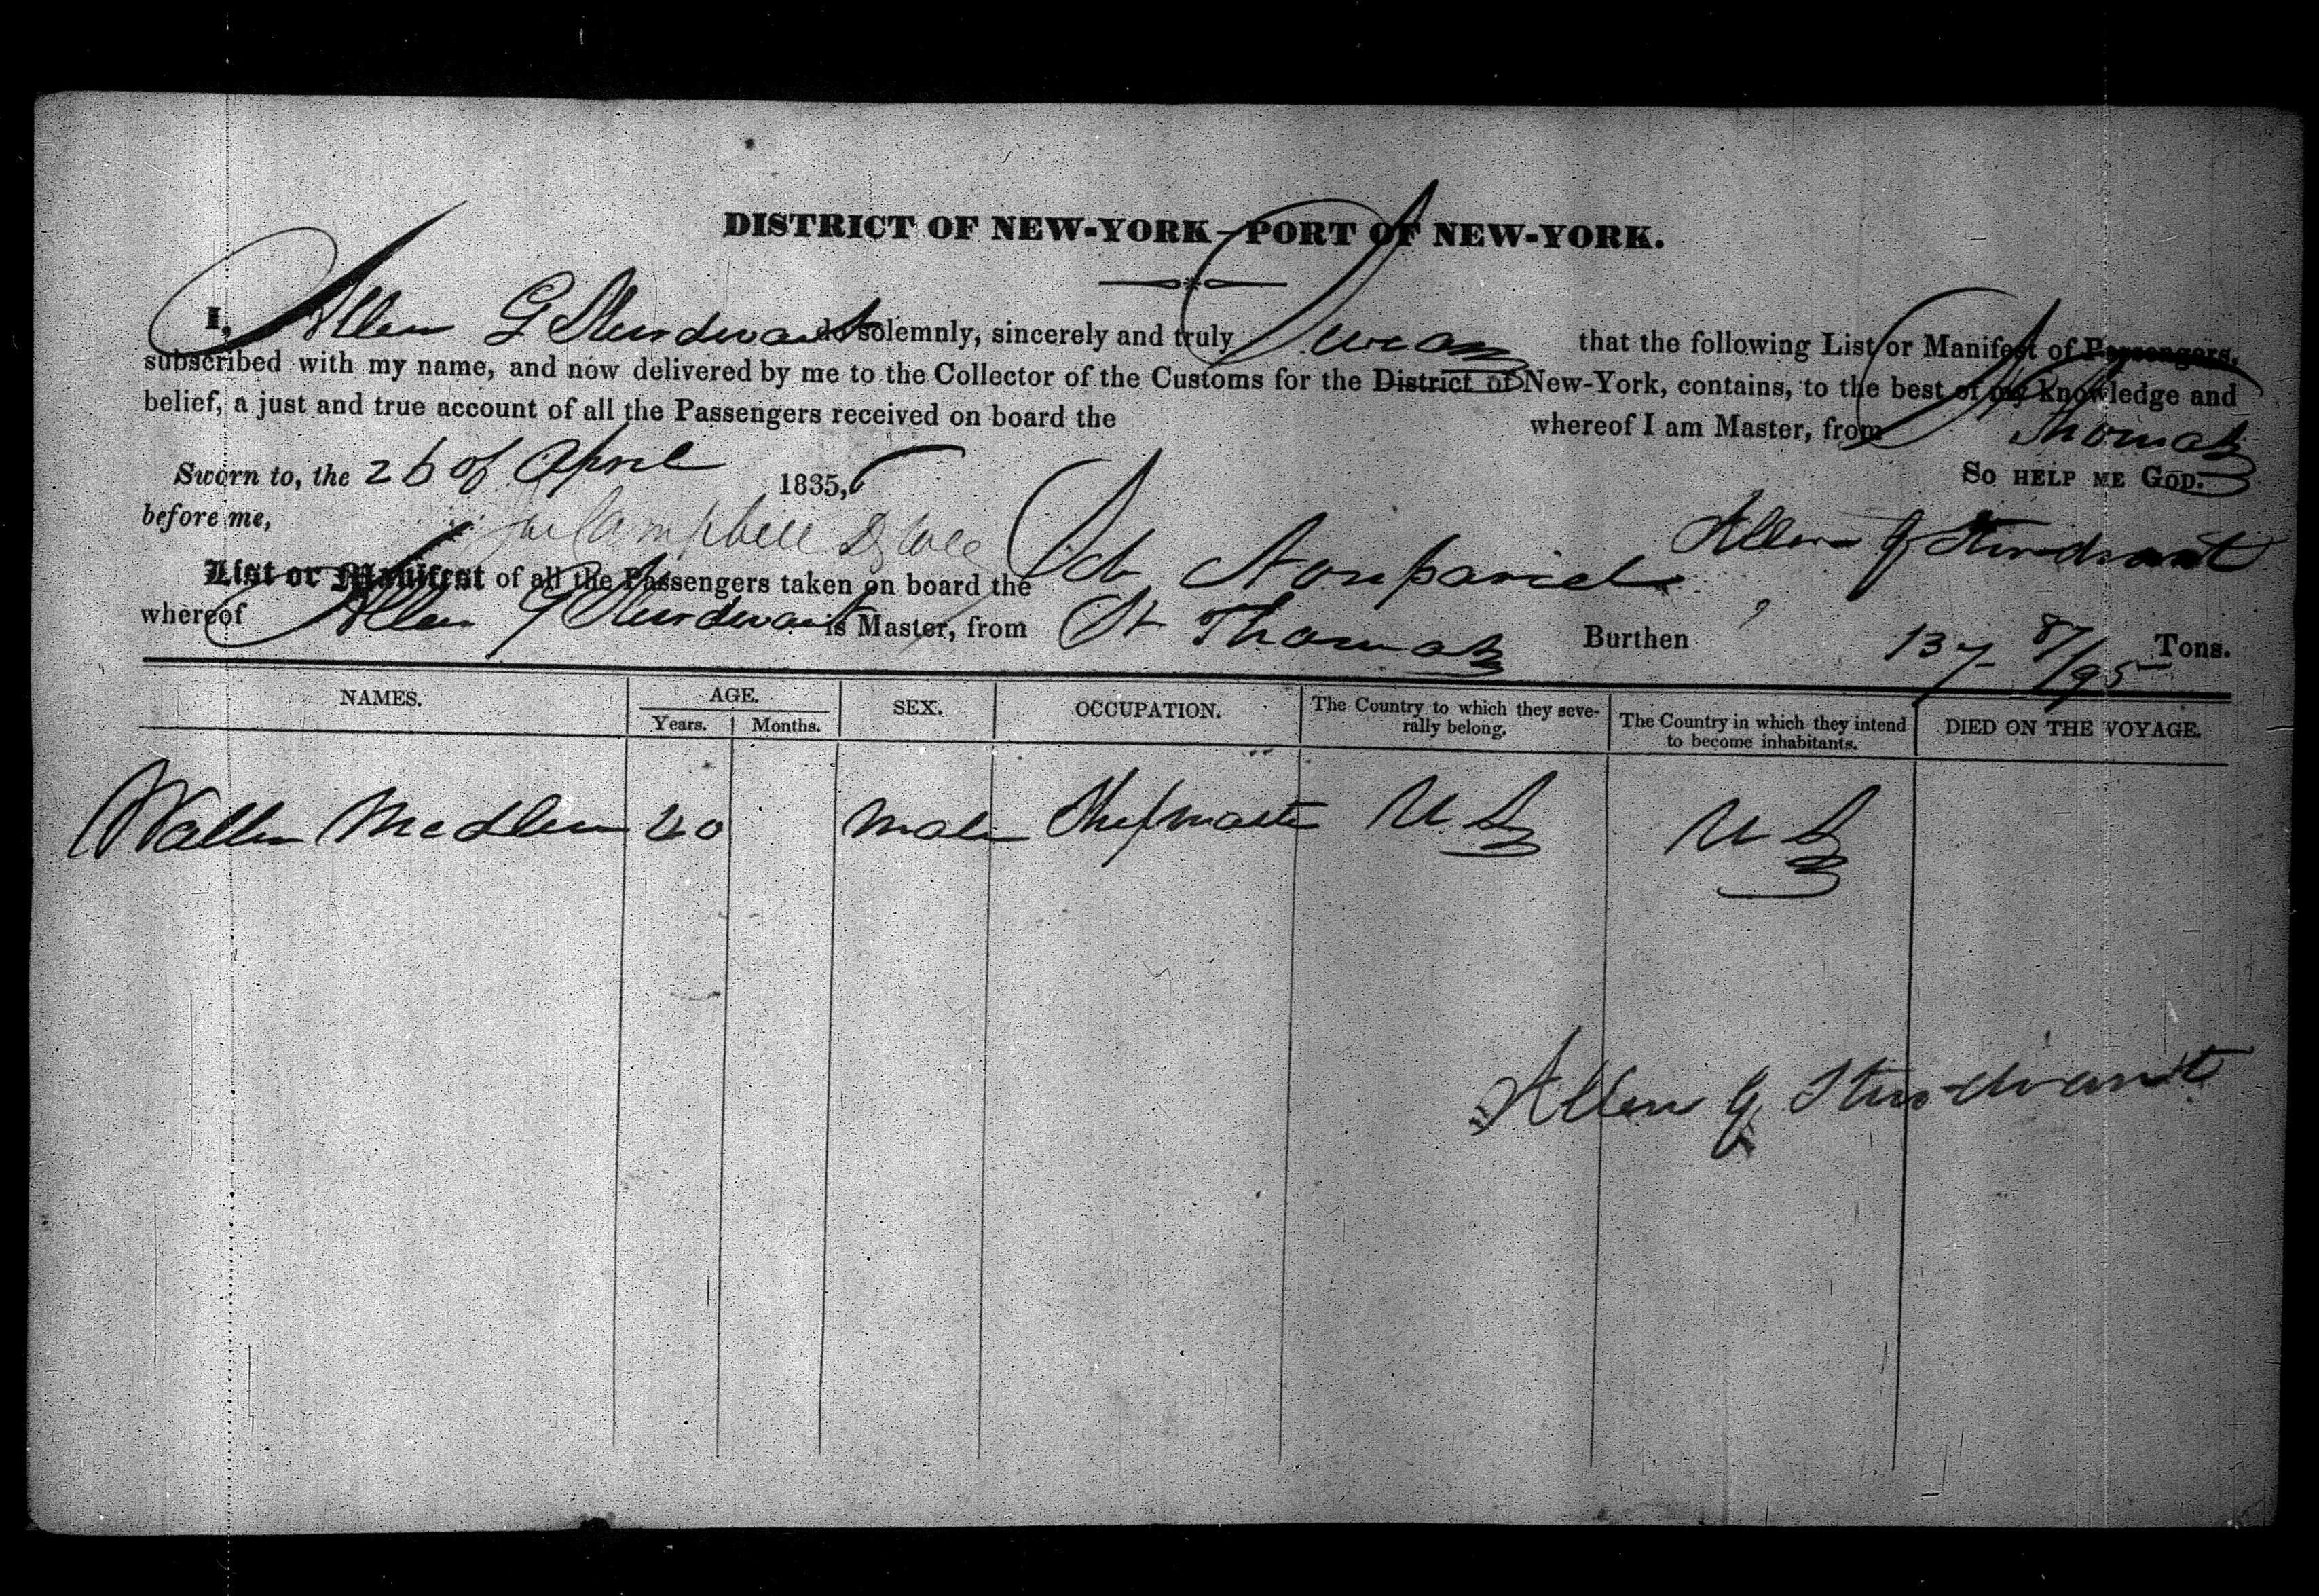 DISTRICT OF NEW-YORK—PORT OF NEW-YORK.
I, Allen G Sturdivant do solemnly, sincerely and truly Swear that the following List or Manifest of Passengers,
subscribed with my name, and now delivered by me to the Collector of the Customs for the District of New-York, contains, to the best of my knowledge and
belief, a just and true account of all the Passengers received on board the whereof I am Master, from St Thomas
Sworn to, the 26 of April 1835,6 SO HELP ME GOD.
before me, Campbell Allen G Sturdivant
List or Manifest of all the Passengers taken on board the Sch Nonpariel
whereof Allen G Sturdivant is Master, from St Thomas Burthen 137 87/95 Tons.
NAMES. AGE. SEX. OCCUPATION. The Country to which they seve-
rally belong. The Country in which they intend
to become inhabitants. DIED ON THE VOYAGE.
Years. Months.
40 Male Shipmaster U S U S
Allen G Sturdivant